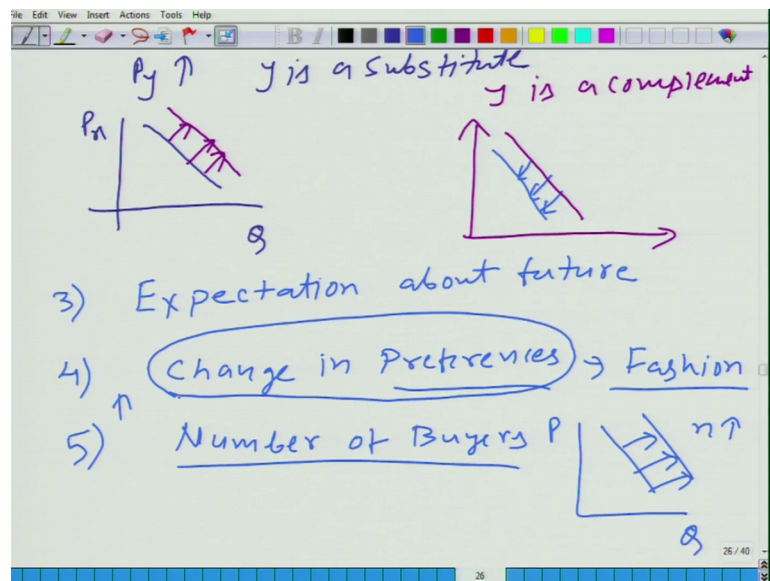 File Edit View Insert Actions Tools Help
Py ↑ y is a substitute
y is a complement
Px
Q
3) Expectation about future
4) Change in Preferences → Fashion
5) ↑ Number of Buyers P n↑
Q
26 / 40
26